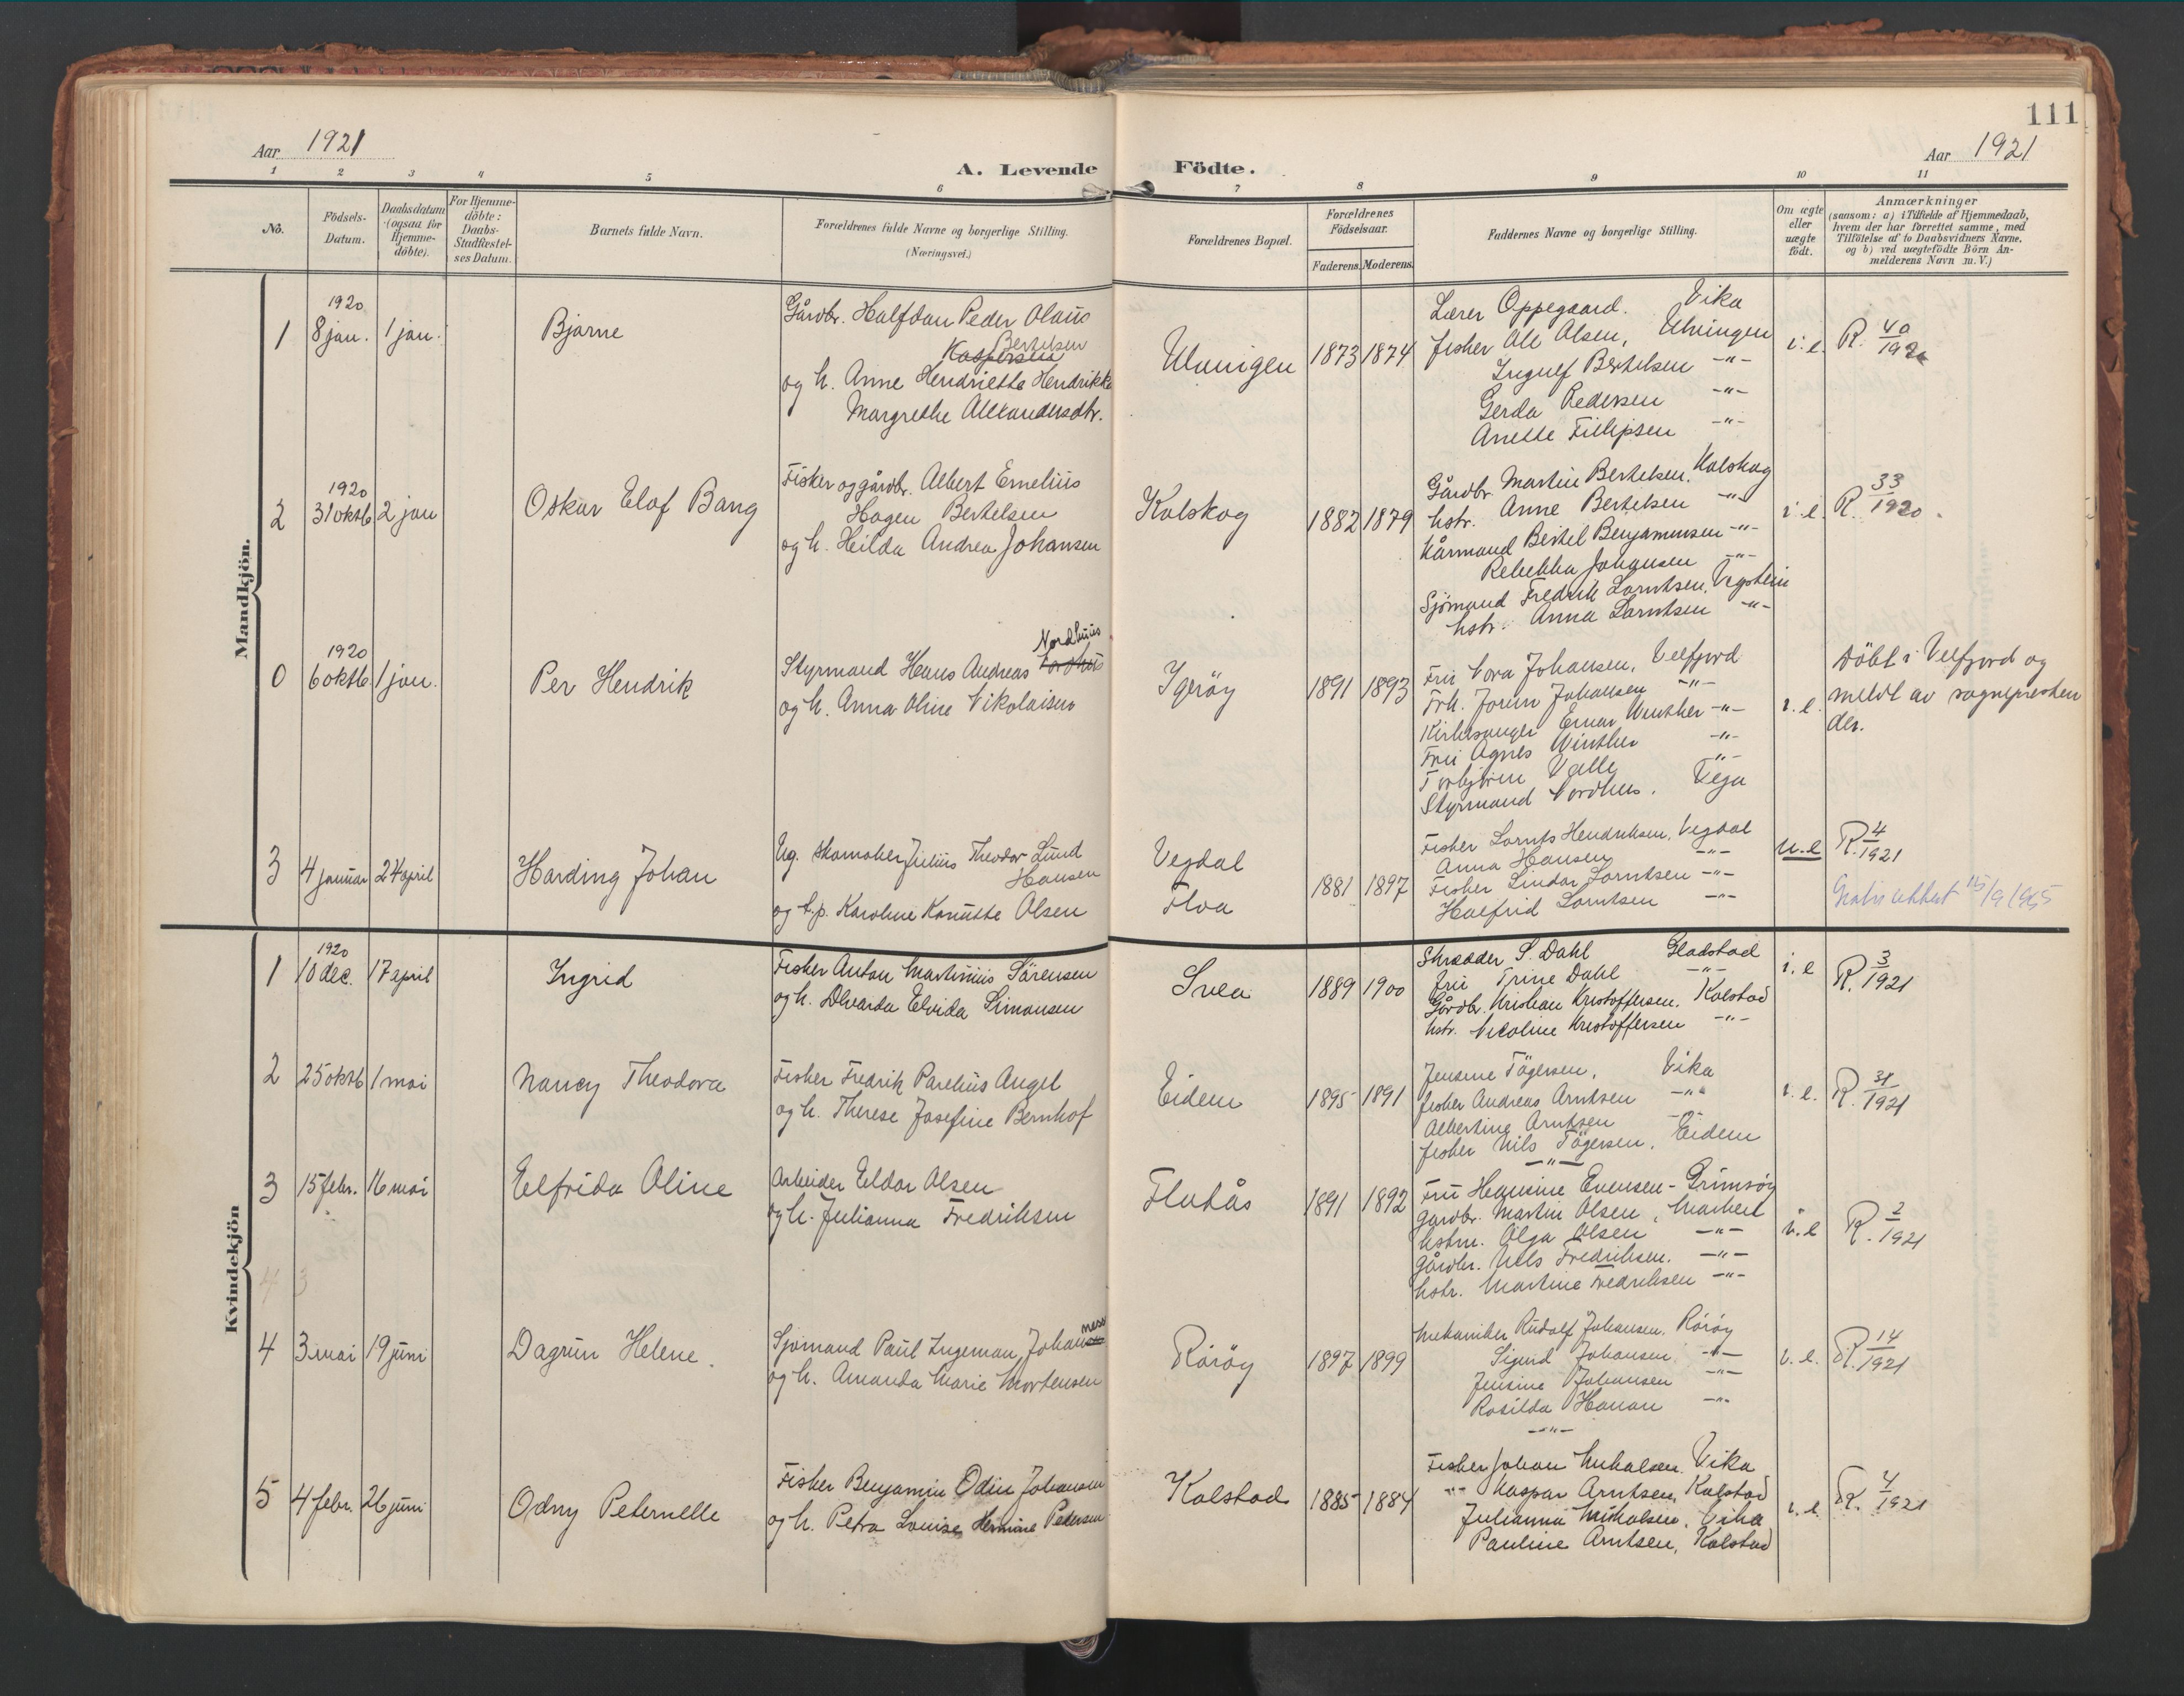 111
Aar 1921
Aar 1921
A. Levende Födte.
1 2 3 4 5 6 7 8 9 10 11
No.
Födsels-
Datum.
Daabsdatum
(ogsaa for
Hjemme-
döbte).
For Hjemme-
döbte:
Daabs-
Stadfæstel-
ses Datum.
Barnets fulde Navn.
Forældrenes fulde Navne og borgerlige Stilling.
(Næringsvei.)
Forældrenes Bopæl.
Forældrenes
Födselsaar.
Faderens. Moderens.
Faddernes Navne og borgerlige Stilling.
Om ægte
eller
uægte
födt.
Anmærkninger
(saasom: a) i Tilfælde af Hjemmedaab,
hvem der har forrettet samme, med
Tilföielse af to Daabsvidners Navne,
og b) ved uægtefödte Börn An-
melderens Navn m. V.)
Mandkjön.
1
1920
8 jan. 1 jan.
Bjarne
Gårdbr. Halfdan Peder Olaus
Bertelsen
Kaspersen
og h. Anne Hendriette Hendrikke
Margrethe Alexandersdtr.
Ulvingen
1873 1874
Lærer Oppegaard. Vika
fisker Ole Olsen, Ulvingen
Ingulf Bertelsen -"-
Gerda Pedersen -"-
Anette Fillipsen -"-
i.e.
R. 40
1920
2
1920
31 oktb 2 jan
Oskar Elof Bang
Fisker og gårdbr. Albert Emelius
Hagen Bertelsen
og h. Hilda Andrea Johansen
Kolskog
1882 1879
Gårdbr. Martin Bertelsen, Kolskog
hstr. Anne Bertelsen -"-
Kårmand Bertel Benjaminsen -"-
Rebekka Johansen -"-
Sjömand Fredrik Lorntsen, Vegstein
hstr. Anna Lorntsen -"-
i.e.
R. 33
1920.
0
1920
6 oktb. 1 jan.
Per Hendrik
Nordhuus
Styrmand Hans Andreas
og h. Anna Oline Nikolaisen
Ygeröy
1891 1893
Fru Nora Johansen, Velfjord
Frk. Jorun Johansen -"-
Kirkesanger Einar Winther -"-
Fru Agnes Winther -"-
Torbjörn Valle -"-
Styrmand Nordhus. Vega
i.e.
Döbt i Velfjord og
meldt av sognepresten
der.
3
4 januar 24 april
Harding Johan
Ug. skomaker Julius Theodor Lund
Hansen
og t.p. Karoline Kanutte Olsen
Vegdal
Floa
1881 1897
Fisker Lornts Hendriksen, Vegdal
Anna Hansen -"-
Fisker Lindar Lorntsen -"-
Halfrid Lorntsen -"-
u.e
R. 4
1921
15/9 1955
Kvindekjön
1
1920
10 dec. 17 april
Ingrid
Fisker Anton Martinius Sörensen
og h. Dlvarda Elvida Simonsen
Svea
1889 1900
Skrædder S. Dahl Gladstad
fru Trine Dahl -"-
Gårdbr. Kristian Kristoffersen. Kolstad
hstr. Nicoline Kristoffersen -"-
i.e
R. 3
1921
2
25 oktb 1 mai
Nancy Theodora
Fisker Fredrik Parelius Angel
og h. Therese Josefine Bernhof
Eidem
1895 1891
Jensine Tögersen, Vika
fisker Andreas Arntsen -"-
Albertine Arntsen -"-
fisker Nils Tögersen, Eidem
-"-
i.e.
R. 31
1921
3
15 febr. 16 mai
Elfrida Oline
Arbeider Eldor Olsen
og h. Julianna Fredriksen
Flutås
1891 1892
Fru Hansine Evensen - Grimsöy
gårdbr. Martin Olsen,
hstru. Olga Olsen -"-
gårdbr. Nils Fredriksen. -"-
hstr. Martine Fredriksen -"-
i.e
R. 2
1921
4 3
4
3 mai 19 juni
Dagrun Helene.
Sjömand Paul Ingeman Johannes
og h. Amanda Marie Mortensen
Röröy
1897 1899
Mekaniker Rudolf Johansen, Röröy
Sigurd Johansen -"-
Jensine Johansen -"-
Rosilda Hanan -"-
-"-
i.e.
R. 14
1921
5
4 febr. 26 juni
Odny Peternelle
Fisker Benjamin Odin Johansen
og h. Petra Louise Hermine Pedersen
Kolstad
1885 1884
Fisker Johan Mikalsen. Vika
-"- Kaspar Arntsen, Kolstad
Julianna Mikalsen, Vika
Pauline Arntsen, Kolstad
i.e.
R. 4
1921